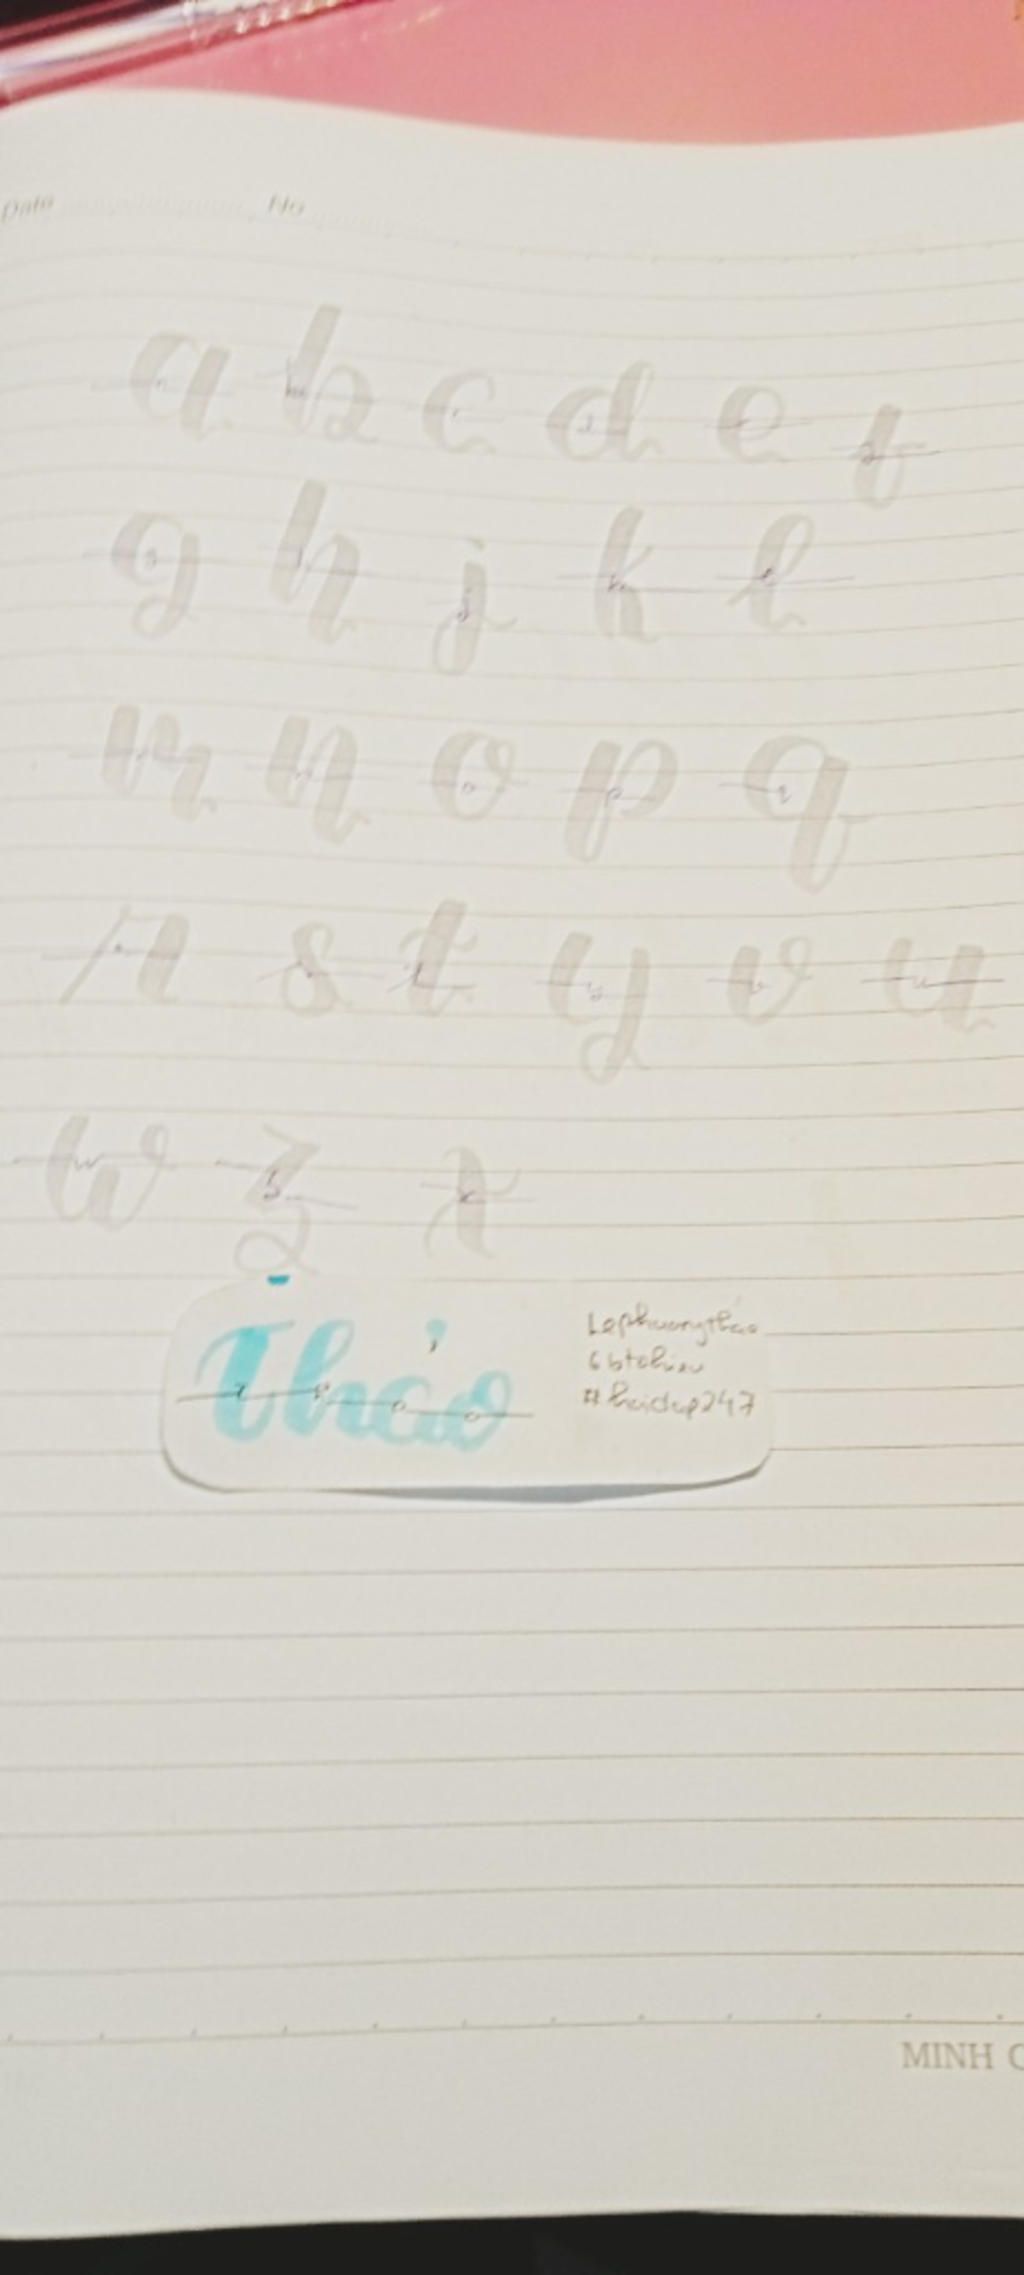 Date No
a b c d e f
g h j k l
m n o p q
r s t y v u
w z x
Thảo
Lephuongthao
6btohieu
#hoidap247
MINH C